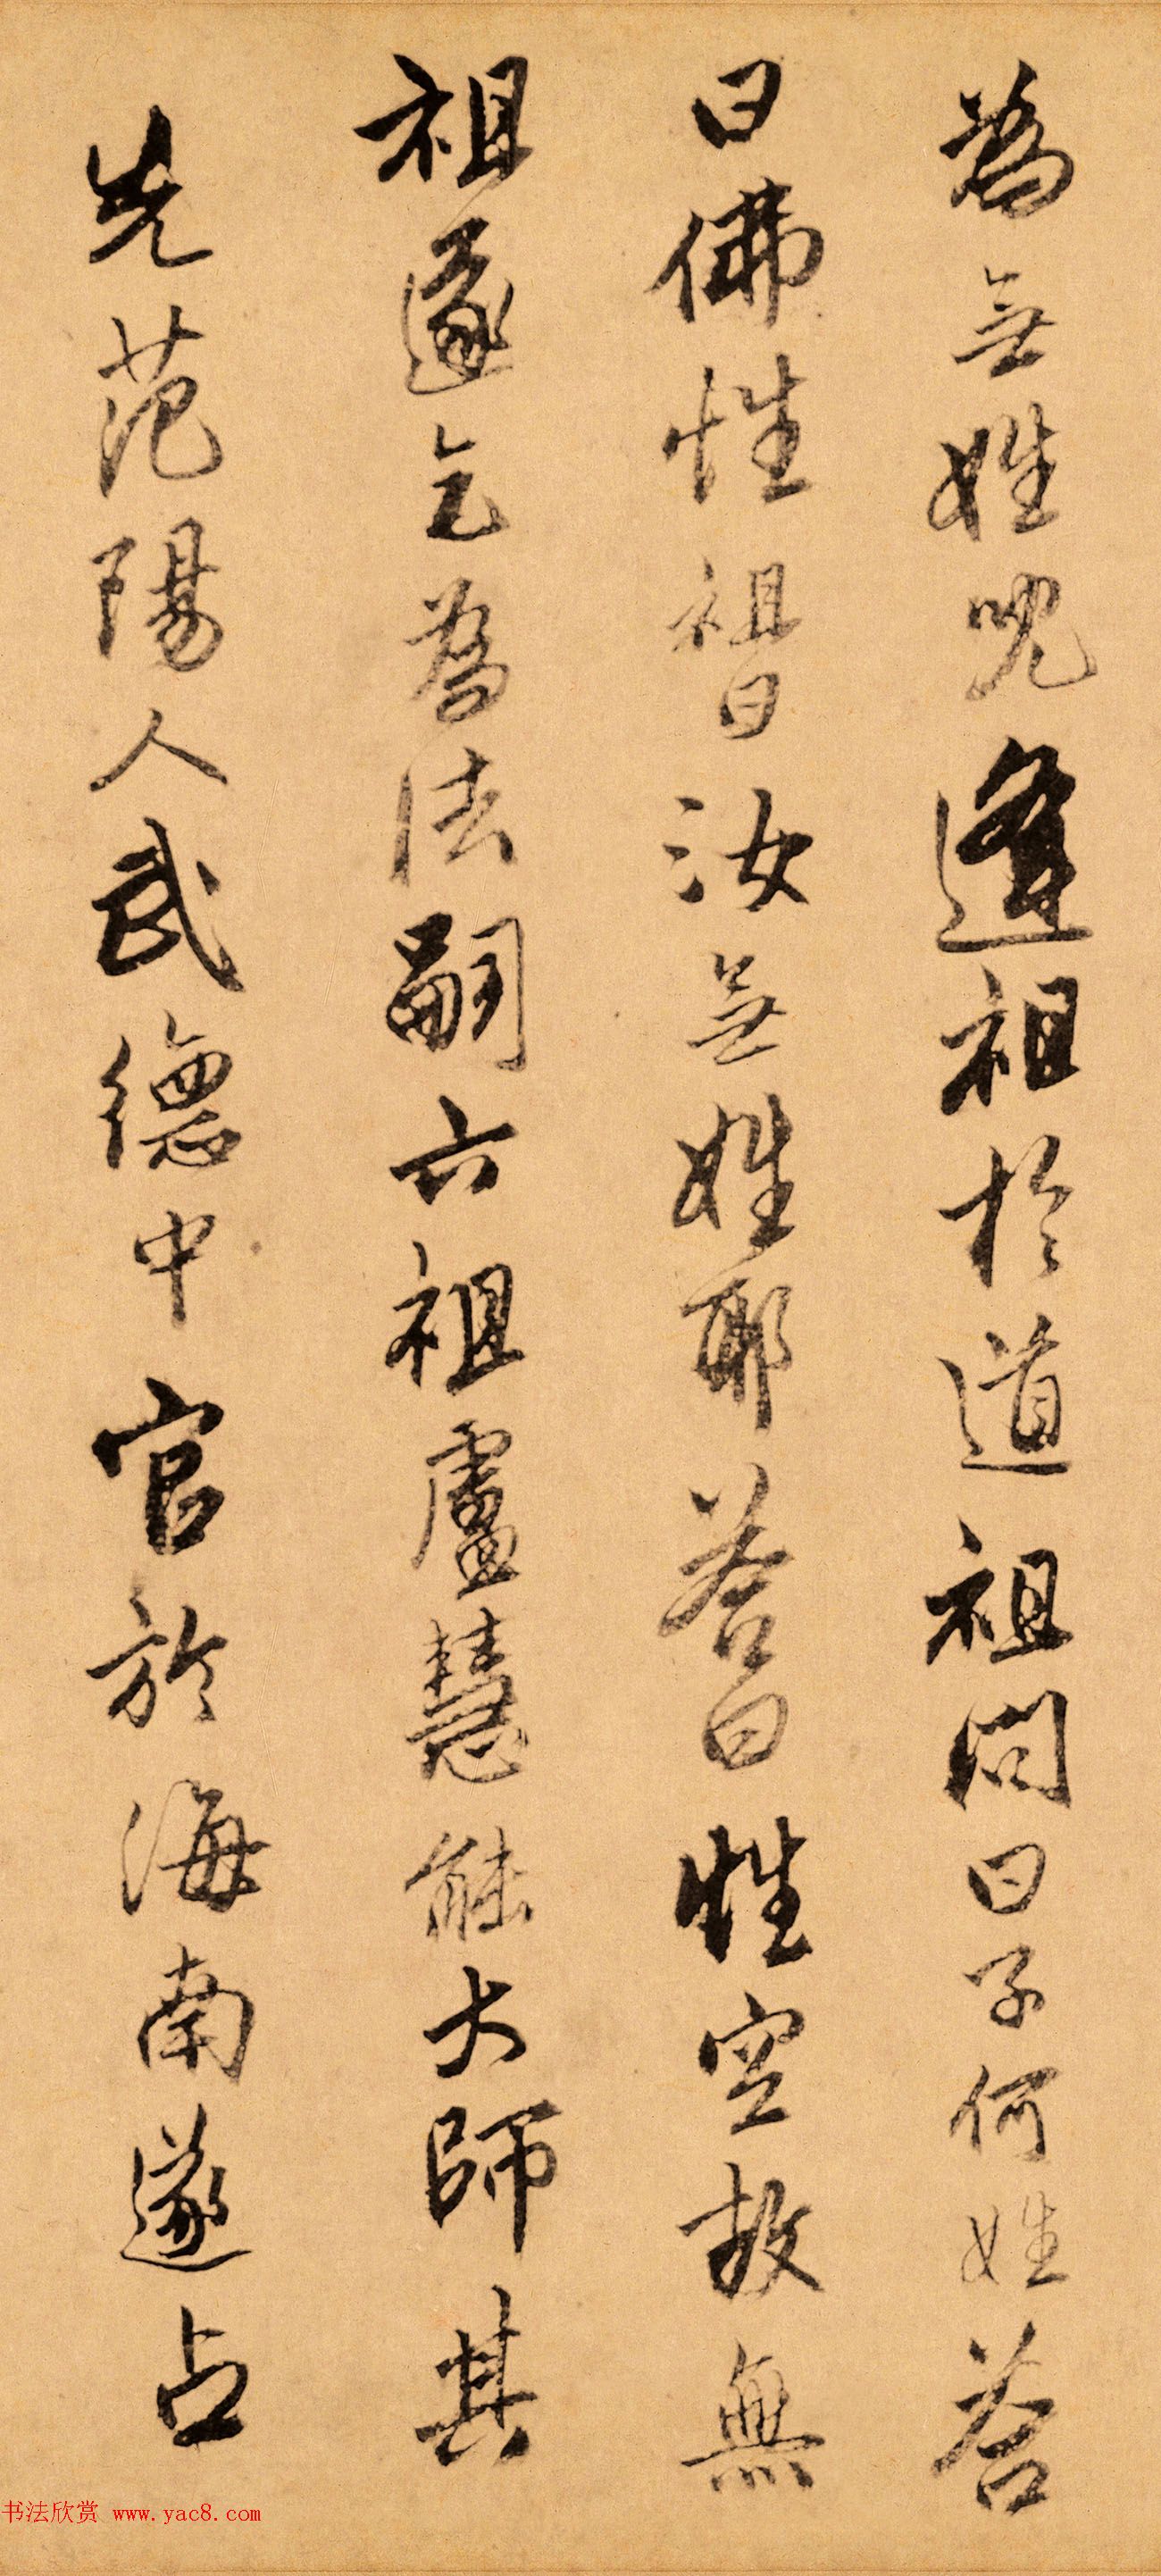 為無姓児逢祖於道祖問曰子何姓荅
曰佛性祖曰汝無姓耶荅曰性空故無
祖遂乞為法嗣六祖盧慧能大師其
先范陽人武德中官於海南遂占
书法欣赏 www.yac8.com